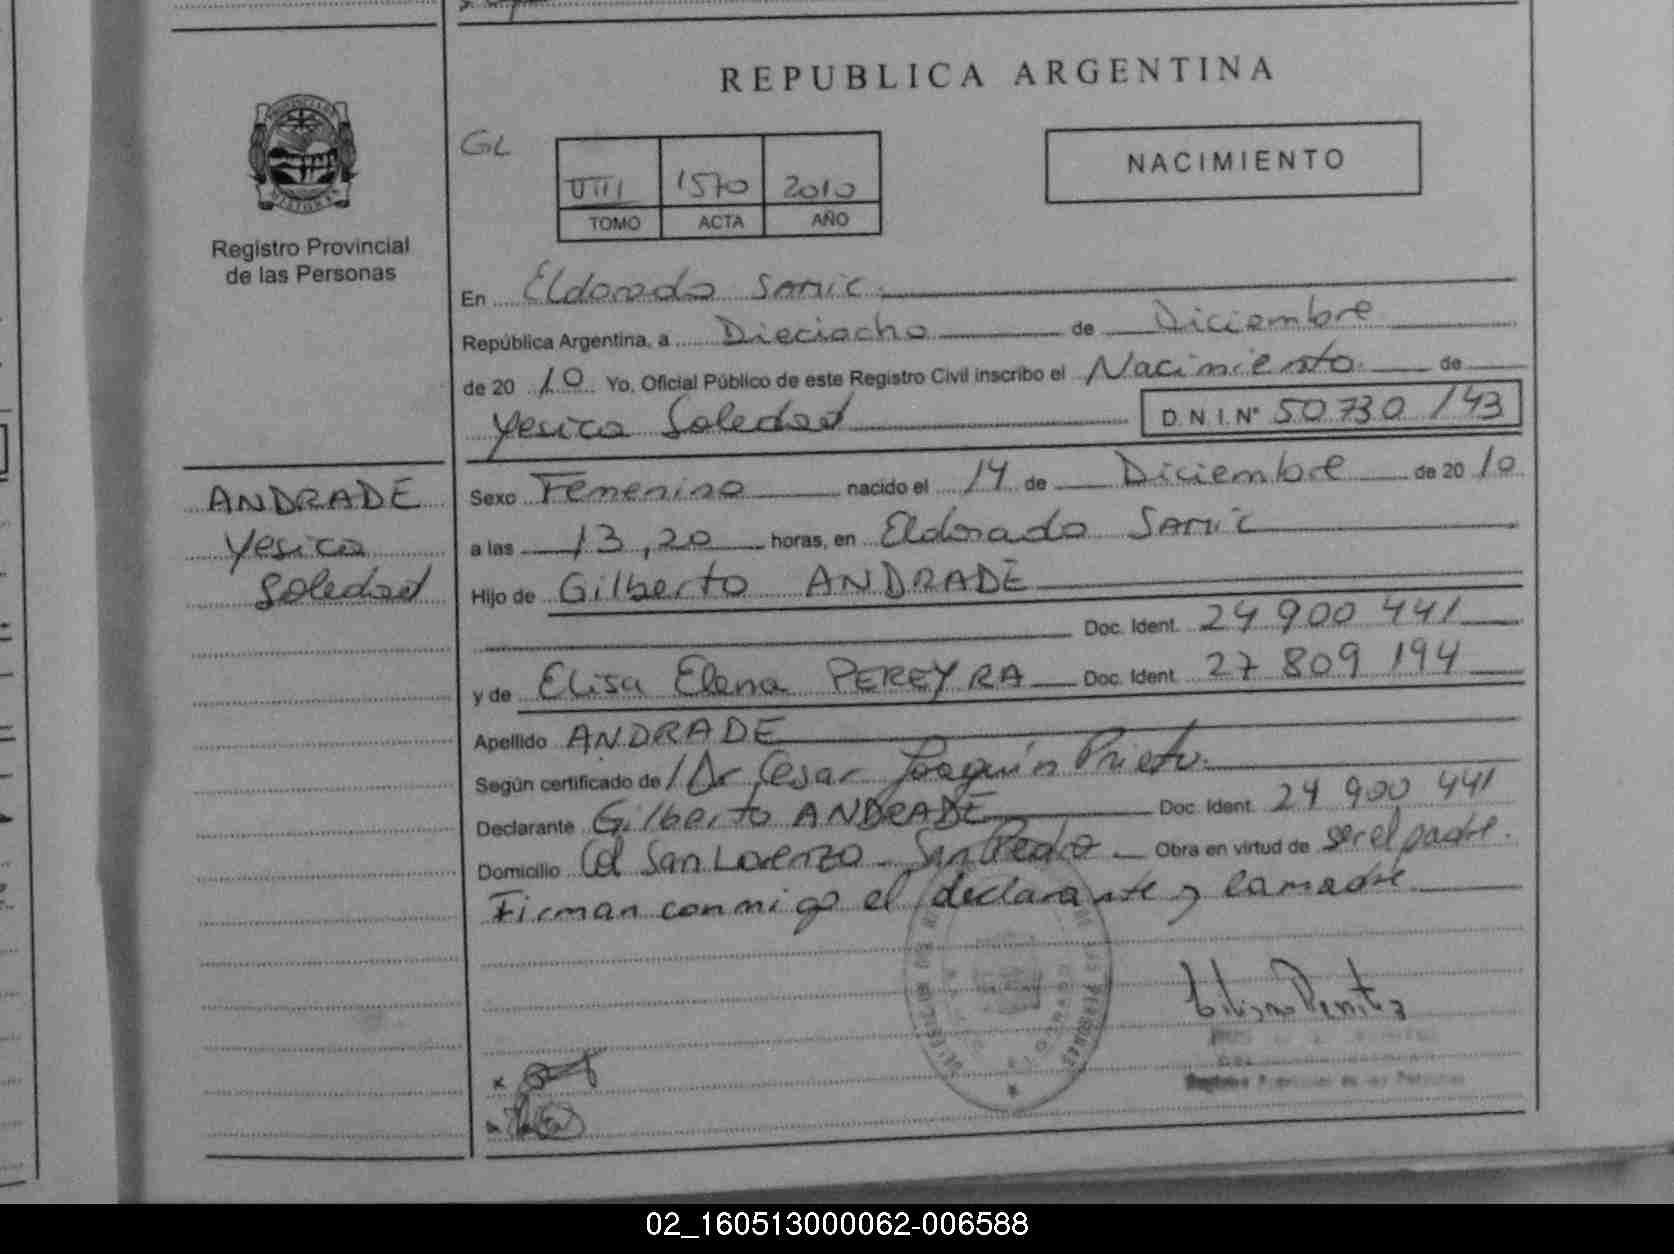 REPUBLICA ARGENTINA
Registro Provincial
de las Personas
GL
VIII 1570 2010
TOMO ACTA AÑO
NACIMIENTO
En Eldorado SAMIC.
República Argentina, a Dieciocho de Diciembre
de 20 10 Yo, Oficial Público de este Registro Civil inscribo el Nacimiento de
Yesica Soledad D.N.I. N° 50 730 143
ANDRADE
Yesica
Soledad
Sexo Femenino nacido el 14 de Diciembre de 20 10
a las 13,20 horas, en Eldorado SAMIC
Hijo de Gilberto ANDRADE
Doc. Ident. 24 900 441
y de Elisa Elena PEREYRA Doc. Ident. 27 809 194
Apellido ANDRADE
Según certificado de Dr Cesar Joaquín Prieto.
Declarante Gilberto ANDRADE Doc. Ident. 24 900 441
Domicilio Col San Lorenzo - San Pedro Obra en virtud de ser el padre.
Firman conmigo el declarante y la madre
02_160513000062-006588